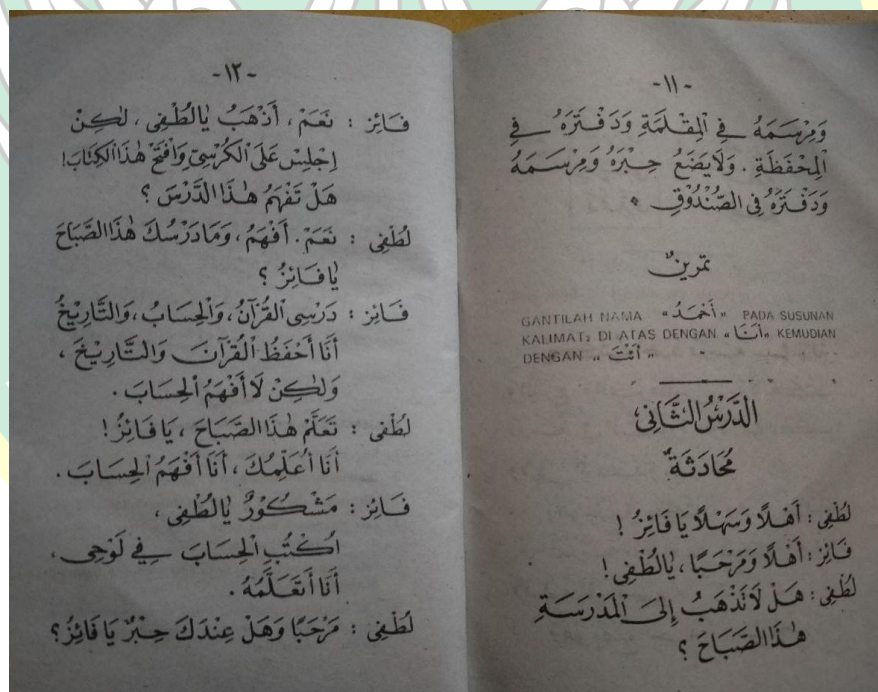 -١١-
وَمِرْسَمَهُ فِي الْمِقْلَمَةِ وَدَفْتَرَهُ فِي
الْمِحْفَظَةِ . وَلَا يَضَعُ حِبْرَهُ وَمِرْسَمَهُ
وَدَفْتَرَهُ فِى الصُّنْدُوْقِ *
تمرينٌ
GANTILAH NAMA «أَحْمَدُ» PADA SUSUNAN
KALIMAT2 DI ATAS DENGAN «أَنَا» KEMUDIAN
DENGAN «أَنْتَ»
الدَّرْسُ الثَّانِى
مُحَادَثَةٌ
لُطْفِى : أَهْلًا وَسَهْلًا يَا فَائِزُ !
فَائِز : أَهْلًا وَمَرْحَبًا ، يَالُطْفِى !
لُطْفِى : هَلْ لَاتَذْهَبُ إِلَى الْمَدْرَسَةِ
هٰذَا الصَّبَاحَ ؟
-١٢-
فَائِز : نَعَمْ ، أَذْهَبُ يَالُطْفِى ، لٰكِنْ
اِجْلِسْ عَلَى الْكُرْسِيِّ وَافْتَحْ هٰذَا الْكِتَابَ!
هَلْ تَفْهَمُ هٰذَا الدَّرْسَ ؟
لُطْفِى : نَعَمْ . أَفْهَمُ ، وَمَا دَرْسُكَ هٰذَا الصَّبَاحَ
يَا فَائِزُ ؟
فَائِز : دَرْسِى الْقُرْآنُ ، وَالْحِسَابُ ، وَالتَّارِيْخُ
أَنَا أَحْفَظُ الْقُرْآنَ وَالتَّارِيْخَ ،
وَلٰكِنْ لَا أَفْهَمُ الْحِسَابَ .
لُطْفِى : تَعَلَّمْ هٰذَا الصَّبَاحَ ، يَا فَائِزُ !
أَنَا أُعَلِّمُكَ ، أَنَا أَفْهَمُ الْحِسَابَ .
فَائِز : مَشْكُوْرٌ يَالُطْفِى ،
اُكْتُبِ الْحِسَابَ فِي لَوْحِى ،
أَنَا أَتَعَلَّمُهُ .
لُطْفِى : مَرْحَبًا وَهَلْ عِنْدَكَ حِبْرٌ يَا فَائِزُ؟